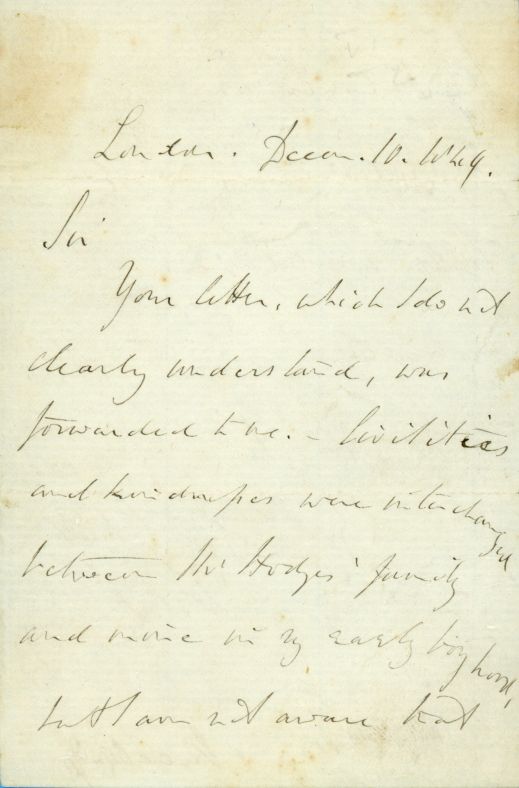 London. Decem. 10. 1849.
Sir
Your letter, which I do not
clearly understand, was
forwarded to me. – Civilities
and kindnesses were interchanged
between Mr Hodges' family
and mine in my early boyhood,
but I am not aware that